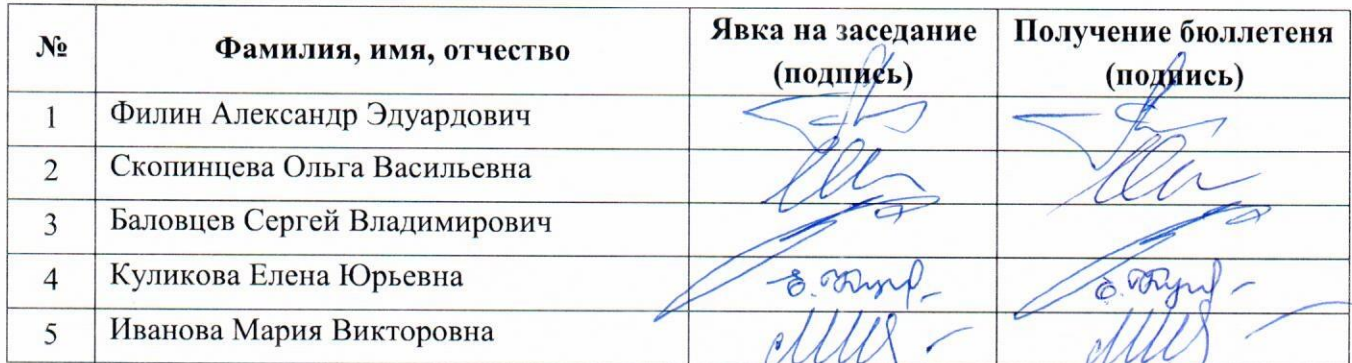 № Фамилия, имя, отчество Явка на заседание (подпись) Получение бюллетеня (подпись)
1 Филин Александр Эдуардович
2 Скопинцева Ольга Васильевна
3 Баловцев Сергей Владимирович
4 Куликова Елена Юрьевна
5 Иванова Мария Викторовна